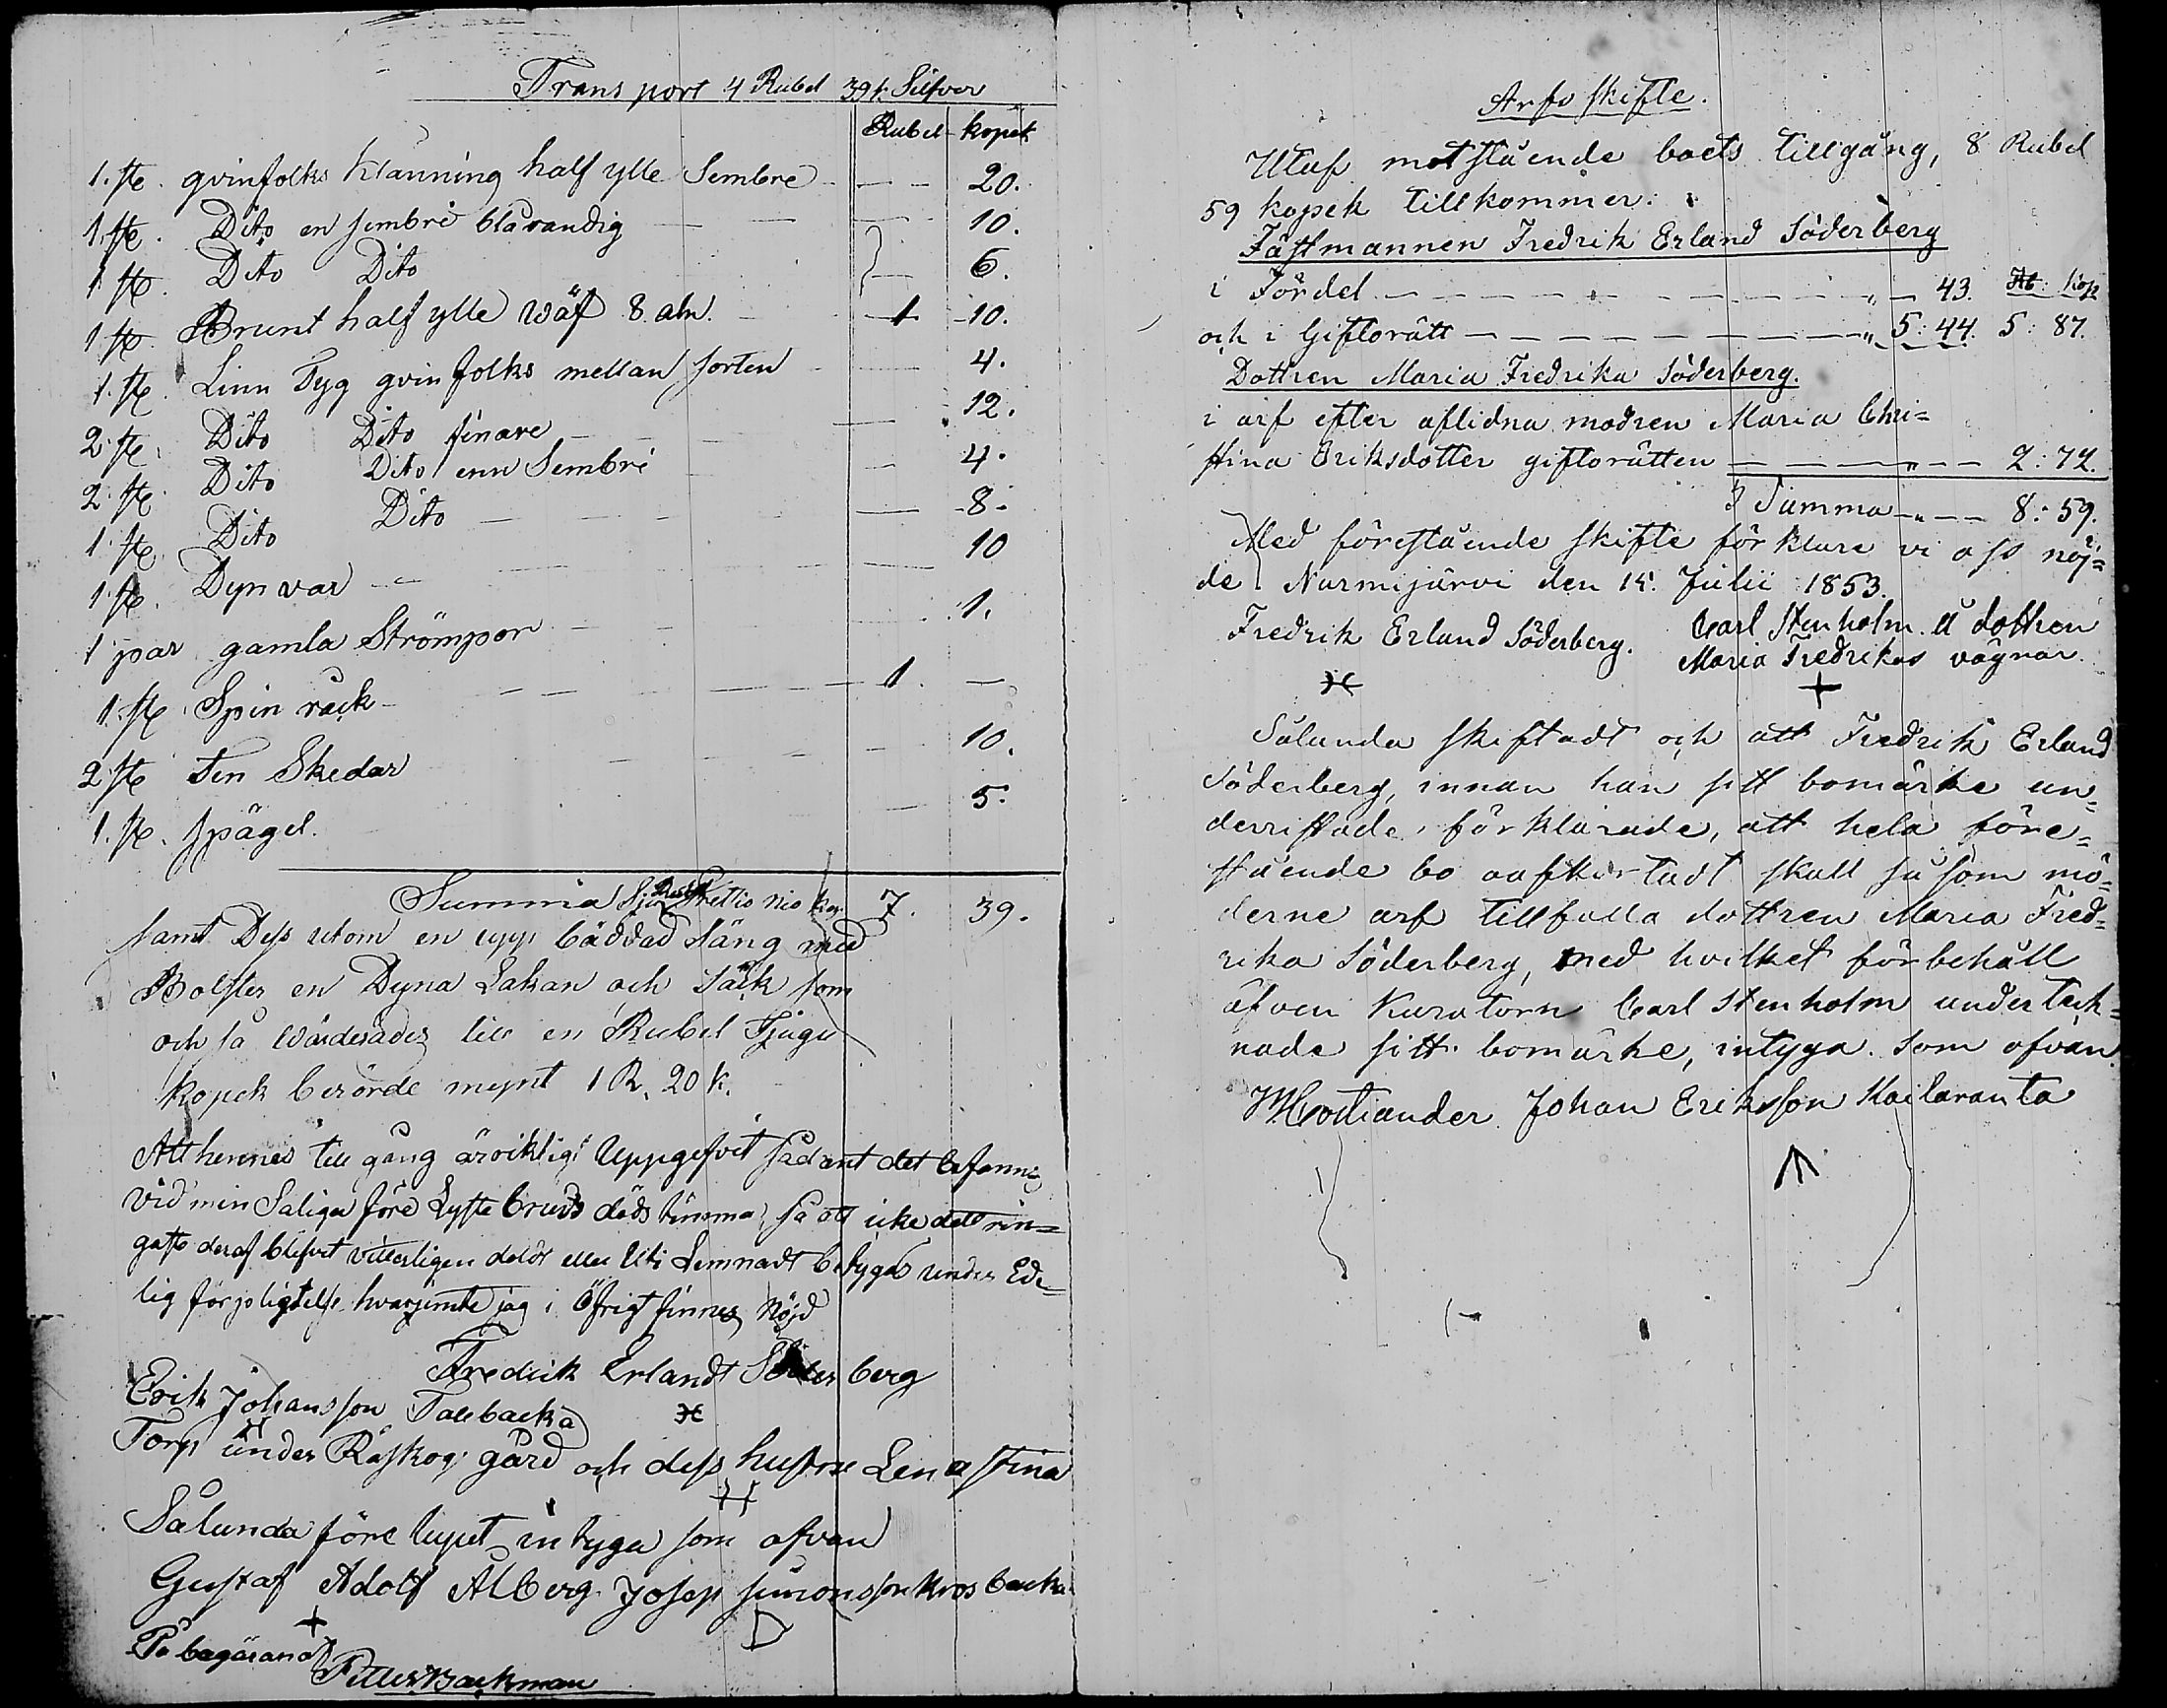 Transport 4 Rubel 39 k. Silfver
Rubel kopek
1. st. qvinfolks Klänning half ylle Sembre — — 20.
1. st. Dito en sembre blårandig — — 10.
1 st. Dito Dito — 6.
1 st. Brunt half ylle wäf 8. aln. — 1 10.
1. st. Linn Tyg qvinfolks mellan sorten — 4.
2 st. Dito Dito finare — 12.
2 st. Dito Dito enn Sembre — 4.
1. st. Dito Dito — 8.
1 st. Dynvar — 10
1 par gamla Strömpor — 1.
1. st. Spin råck — 1. —
2 st. Ten Skedar — 10.
1. st. spägel. — 5.
Summa Sju Rubel Trettio nio kop. 7. 39.
samt Dess utom en upp bäddad Säng med
Bolster en Dyna Lakan och Täck som
och så wärderades till en Rubel Tjugu
kopek berörde mynt 1 R. 20 k.
Att hennes till gång är riktigt Uppgefvit sådant det befanns
vid min Saliga före Lyfte bruds döds timma, så att icke dett rin=
gaste deraf blifvit vitterligen doldt eller Uti Lemnadt betygas under Ede=
lig förpligtelse hvarjemte jag i Öfrigt finnes Nöjd
Fredrik Erlandt Söderberg
Erik Johansson Tallbacka
Torp under Råskog gård och dess hustru Lena Stina
Sålunda före lupet intyga som ofvan
Gustaf Adolf Alberg. Josep Simonsson Krosbacka
På begäran af
Petter Backman
Arfs skifte.
Utaf motstående boets tillgång, 8 Rubel
59 kopek tillkommer:
Fästmannen Fredrik Erland Söderberg
i Fördel — — — — — " — 43. Rb: Kop
och i Giftorätt — — — — — " 5: 44. 5: 87.
Dottren Maria Fredrika Söderberg.
i arf efter aflidna modren Maria Chri=
stina Eriksdotter giftorätten — — — " — — 2: 72.
Summa — " — — 8: 59.
Med förestående skifte förklare vi oss nöj=
de Nurmijärvi den 15. Julii 1853.
Fredrik Erland Söderberg. Carl Stenholm. å dottren
Maria Fredrikas vägnar.
Sålunda skiftadt och att Fredrik Erland
Söderberg, innan han sitt bomärke un=
derristade, förklarade, att hela före=
stående bo oafkortadt skall såsom mö=
derne arf tillfalla dottren Maria Fred=
rika Söderberg, med hvilket förbehåll
äfven Kuratorn Carl Stenholm underteck=
nade sitt bomärke, intyga. Som ofvan.
Johan Eriksson Kailaranta